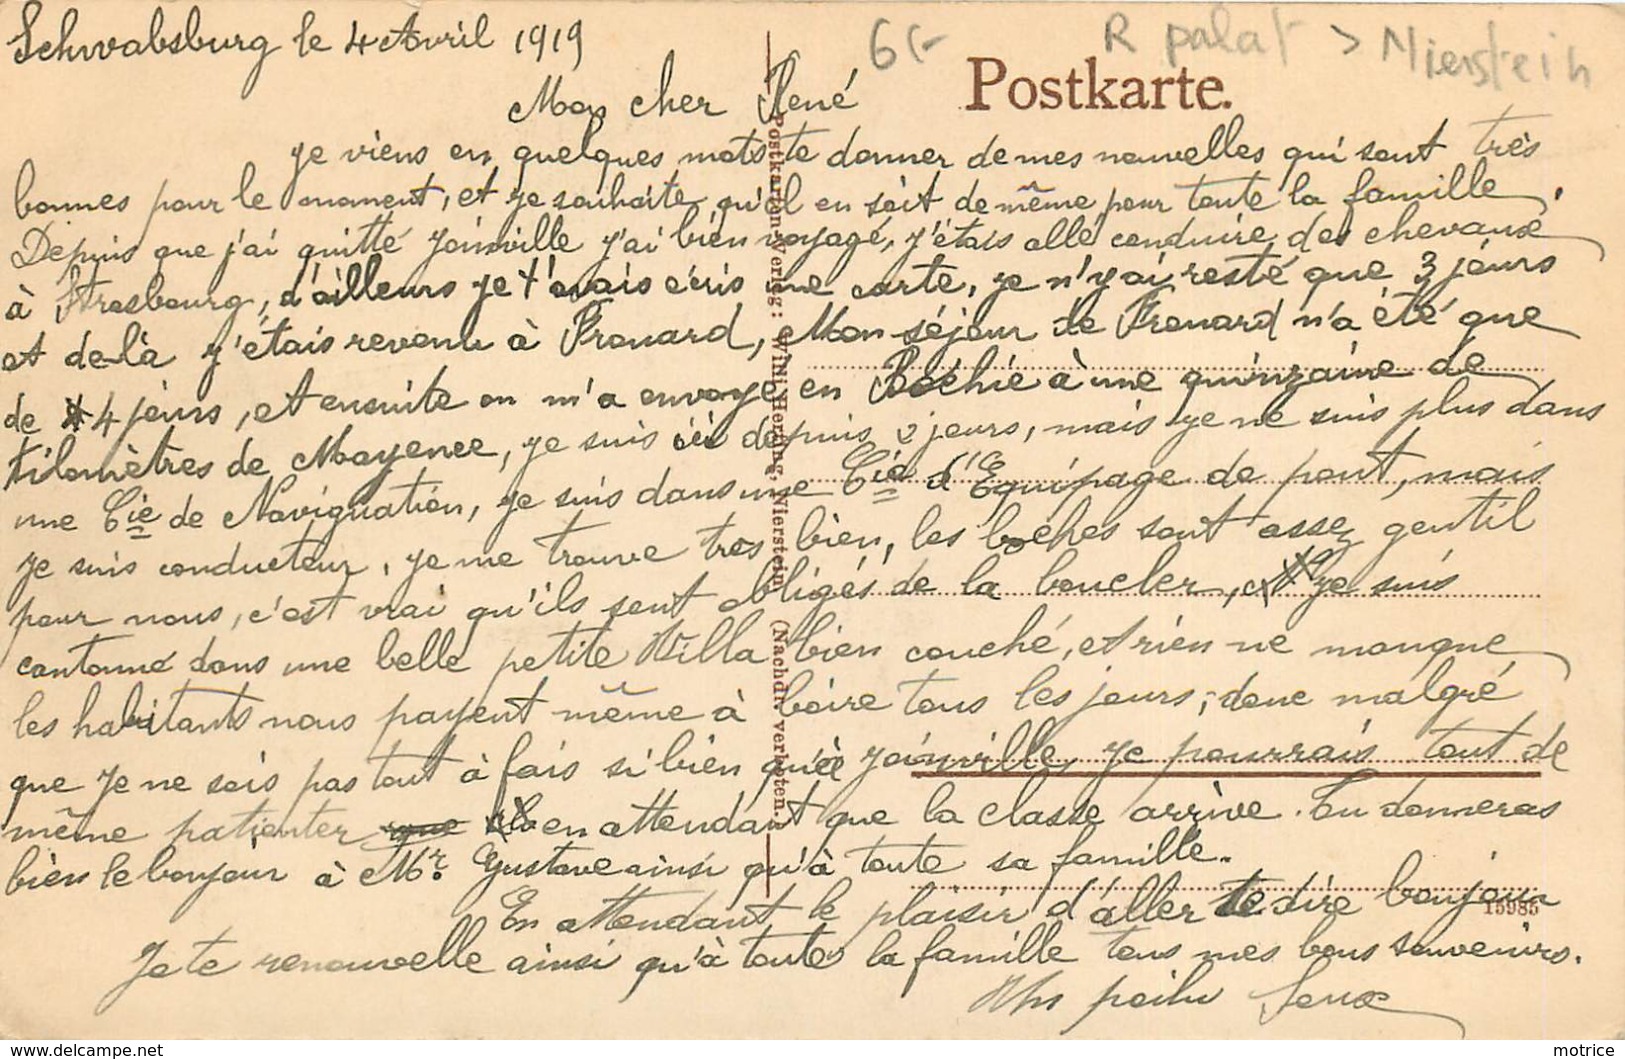 Schwabsburg le 4 Avril 1919
6(-
R palat > Nierstein
Postkarte.
Mon cher René
je viens en quelques mots te donner de mes nouvelles qui sont très
bonnes pour le moment, et je souhaite qu'il en soit de même pour toute la famille.
Depuis que j'ai quitté Joinville j'ai bien voyagé, j'étais allé conduire des chevaux
à Strasbourg, d'ailleurs je t'avais écris une carte, je n'y ai resté que 3 jours
et de là j'étais revenu à Frouard, Mon séjour de Frouard n'a été que
de 4 jours, et ensuite on m'a envoyé en Bochie à une quinzaine de
kilomètres de Mayence, je suis ici depuis 2 jours, mais je ne suis plus dans
une Cie de Navigation, je suis dans une Cie d'Equipage de pont, mais
je suis conducteur, je me trouve très bien, les boches sont assez gentil
pour nous, c'est vrai qu'ils sont obligés de la boucler, je suis
cantonné dans une belle petite Villa bien couché, et rien ne manque
les habitants nous payent même à boire tous les jours, donc malgré
que je ne sois pas tout à fais si bien qu'à Joinville, je pourrais tout de
même patienter en attendant que la classe arrive. Tu donneras
bien le bonjour à Mr. Gustave ainsi qu'à toute sa famille.
En attendant le plaisir d'aller te dire bonjour
Je te renouvelle ainsi qu'à toute la famille tous mes bons souvenirs.
Un poilu
Postkarten-Verlag: Wilh. Herding, Nierstein. (Nachdr. verboten.)
15985
delcampe.net
motrice